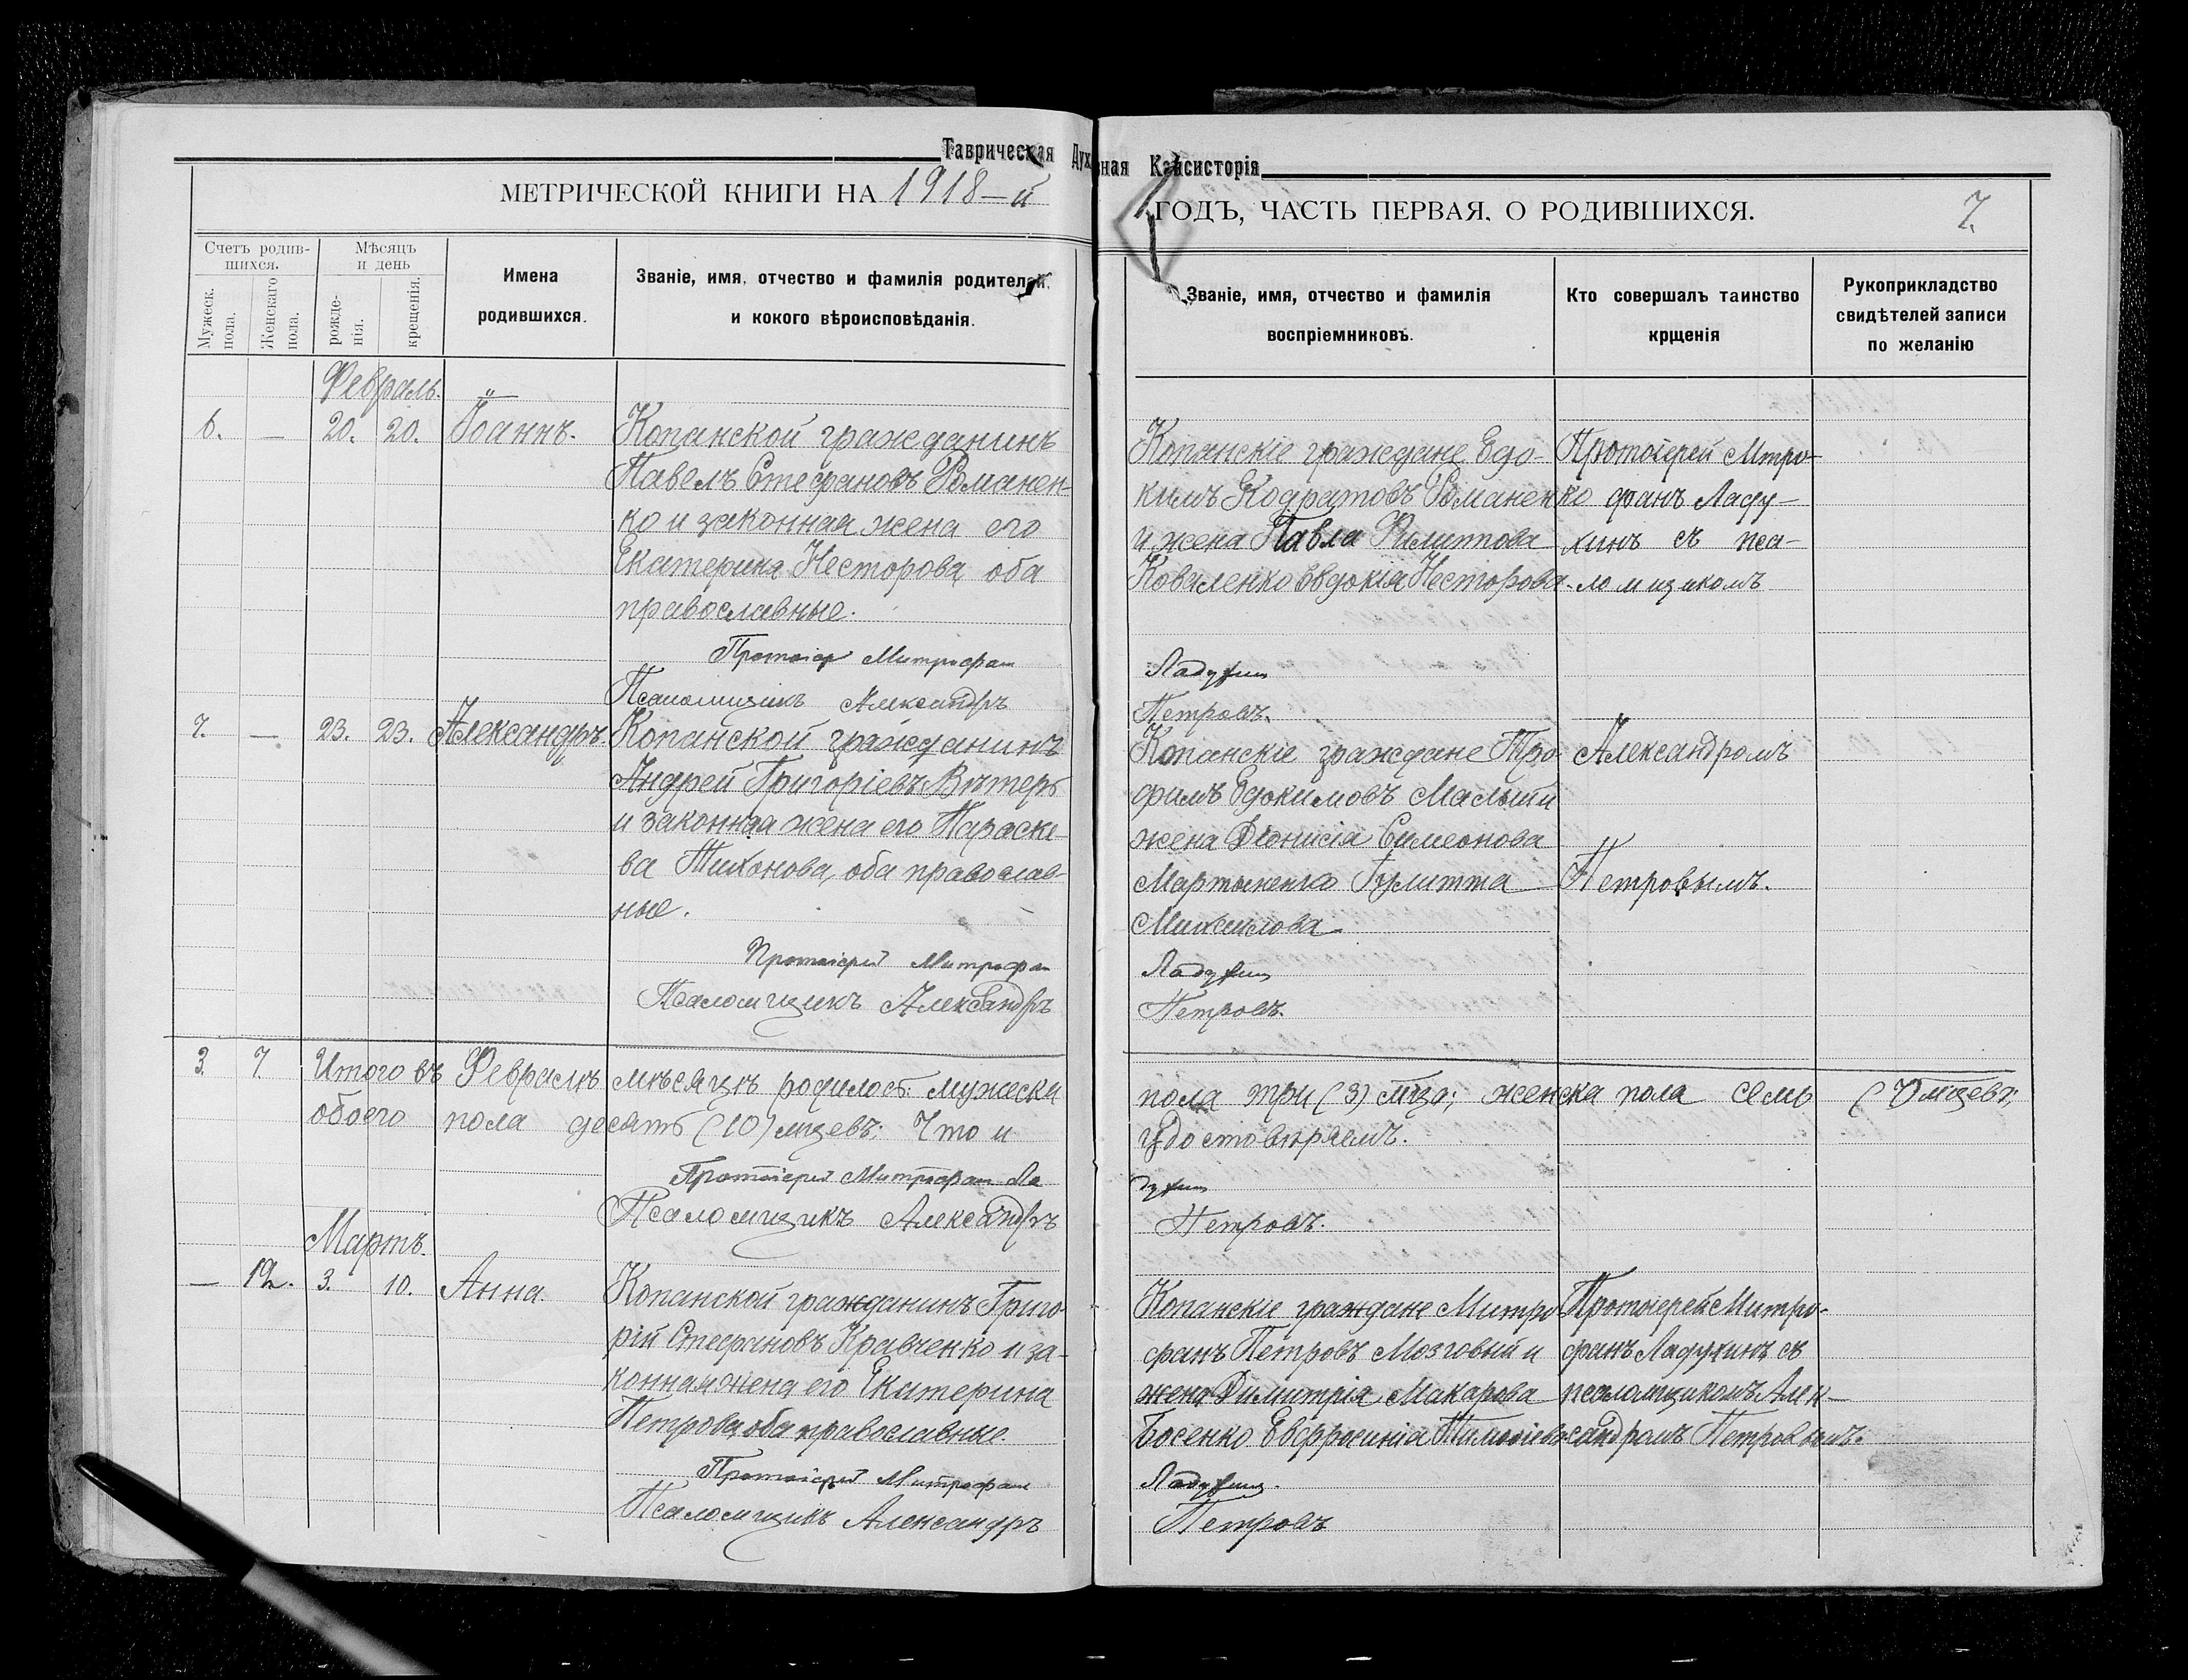 Таврическая Духовная Консисторія
МЕТРИЧЕСКОЙ КНИГИ НА 1918-й
ГОДЪ, ЧАСТЬ ПЕРВАЯ. О РОДИВШИХСЯ.
7.
Счетъ родив-
шихся.
Мѣсяцъ
и день
Мужеск.
пола.
Женскаго
пола.
рожде-
нія.
крещенія.
Имена
родившихся.
Званіе, имя, отчество и фамилія родителей.
и кокого вѣроисповѣданія.
Званіе, имя, отчество и фамилія
воспріемниковъ.
Кто совершалъ таинство
крщенія
Рукоприкладство
свидѣтелей записи
по желанію
Февраль.
6. — 20. 20. Іоаннъ.
Копанской гражданинъ
Павелъ Стефановъ Романен-
ко и законная жена его
Екатерина Несторова оба
православные.
Протоіер Митрофан
Псаломщикъ Александръ
Копанскіе граждане Евдо-
кимъ Кодратовъ Романенко
и жена Павла Филиппова
Коваленко Евдокія Несторова
Ладухин
Петровъ.
Протоіерей Митро-
фанъ Ладу-
хинъ съ пса-
ломщикомъ
7. — 23. 23. Александръ.
Копанской гражданинъ
Андрей Григоріевъ Вѣтеръ
и законная жена его Параске-
ва Тихонова, оба православ-
ные.
Протоіерей Митрофан
Псаломщикъ Александръ
Копанскіе граждане Тро-
фимъ Евдокимовъ Малый и
жена Діонисія Симеонова
Мартыненко Іулитта
Михаилова
Ладухин
Петровъ.
Александромъ
Петровымъ.
3. 7. Итого въ Февралѣ мѣсяцѣ родилось: мужеска пола три (3) мца; женска пола семь (7) мцевъ;
обоего пола десять (10) мцевъ; Что и удостовѣряемъ.
Протоіерей Митрофан Ладухин
Псаломщикъ Александръ Петровъ.
Мартъ.
— 12. 3. 10. Анна.
Копанской гражданинъ Григо-
рій Стефановъ Кравченко и за-
конная жена его Екатерина
Петрова, оба православные.
Протоіерей Митрофан
Псаломщикъ Александръ
Копанскіе граждане Митро-
фанъ Петровъ Мозговый и
жена Димитрія Макарова
Босенко Евфросинія Тимофіева
Ладухин.
Петровъ
Протоіерей Митро-
фанъ Ладухинъ съ
псаломщикомъ Алек-
сандромъ Петровымъ.